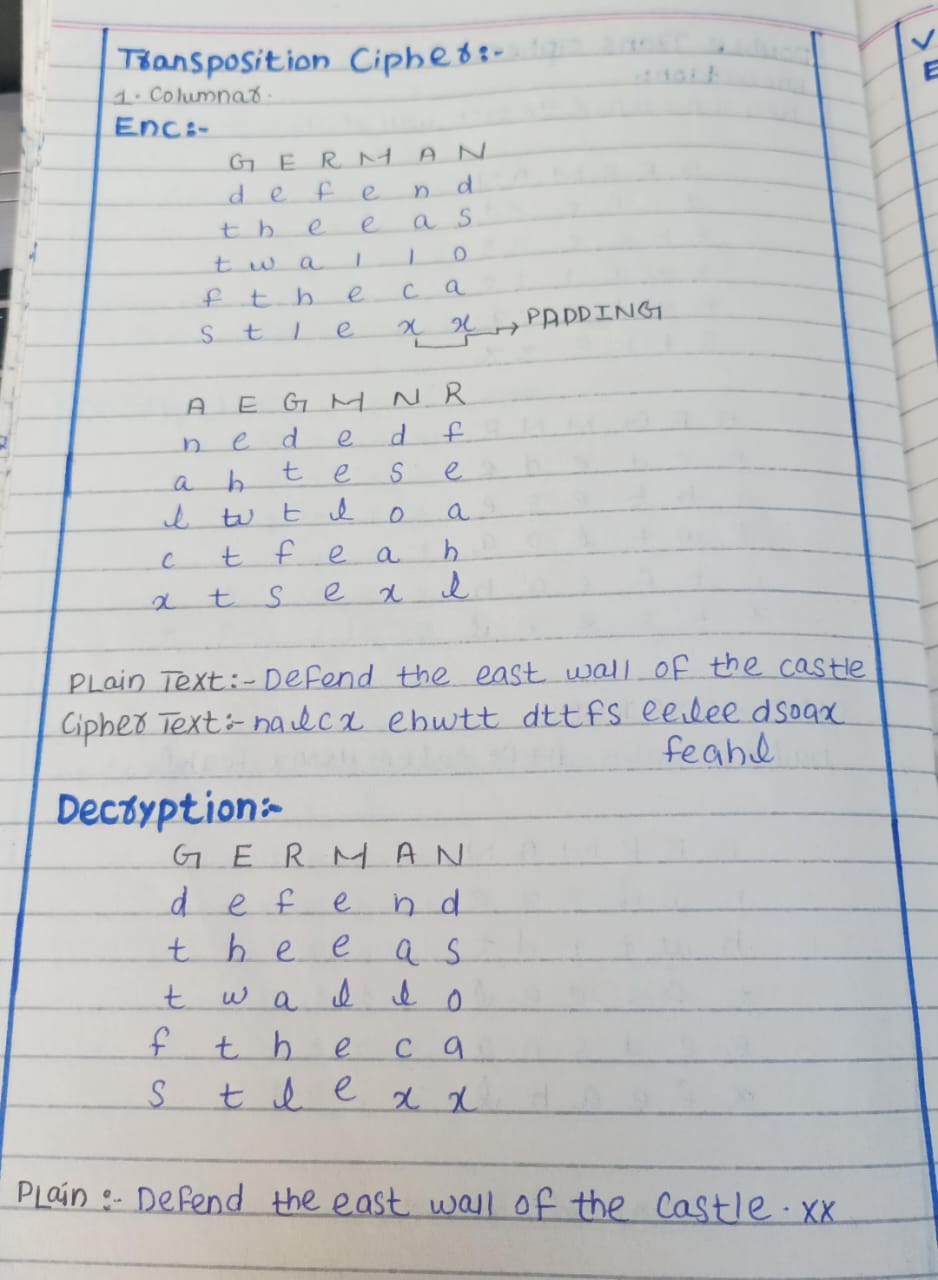 Transposition Cipher:-
1. Columnar.
Enc:-
G E R M A N
d e f e n d
t h e e a s
t w a l l o
f t h e c a
s t l e x x → PADDING
A E G M N R
n e d e d f
a h t e s e
l w t l o a
c t f e a h
x t s e x l
Plain Text:- Defend the east wall of the castle
Cipher Text:- nalcx ehwtt dttfs eelee dsoax
feahl
Decryption:-
G E R M A N
d e f e n d
t h e e a s
t w a l l o
f t h e c a
s t l e x x
Plain :- Defend the east wall of the castle. xx
V
E